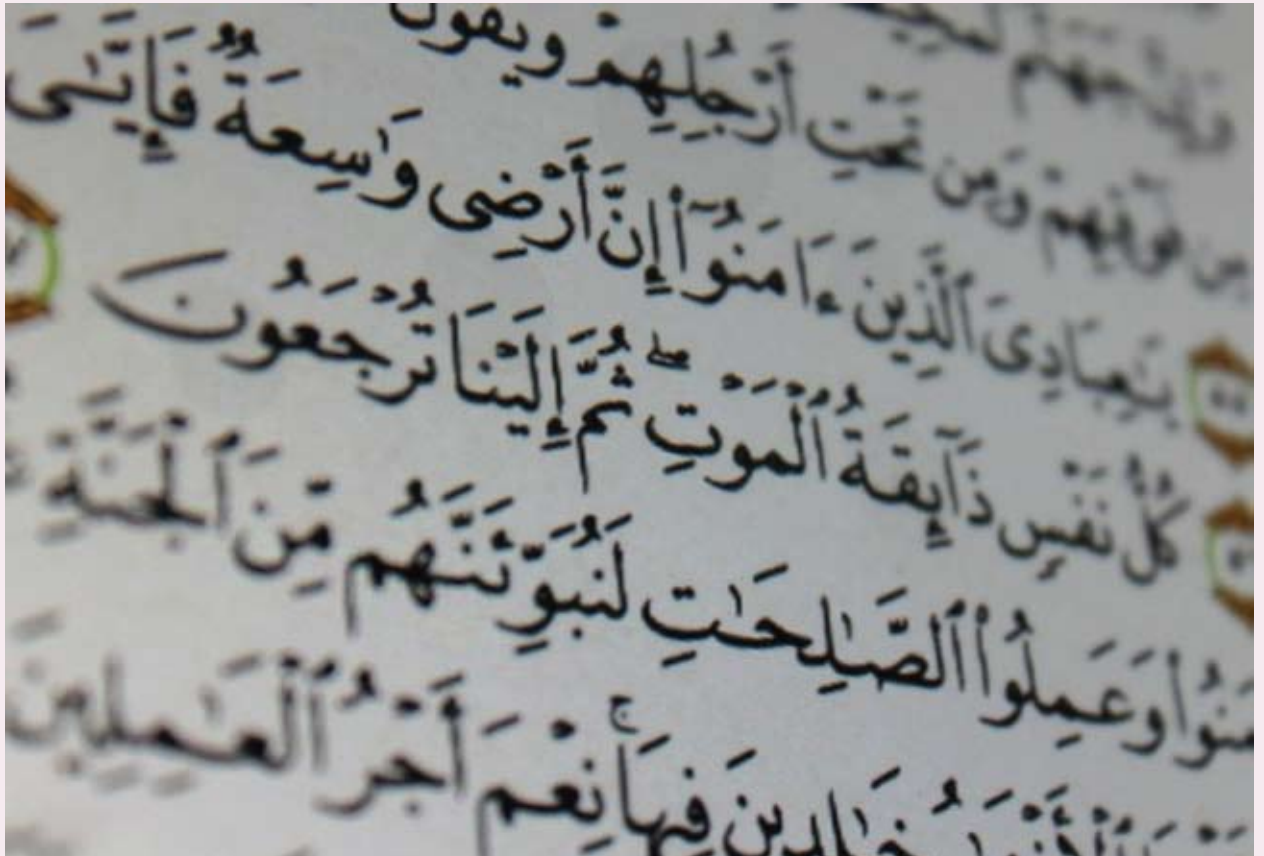 جَهَنَّمَ
مِن فَوْقِهِمْ وَمِن تَحْتِ أَرْجُلِهِمْ وَيَقُولُ
يَـٰعِبَادِىَ ٱلَّذِينَ ءَامَنُوٓا۟ إِنَّ أَرْضِى وَٰسِعَةٌ فَإِيَّـٰىَ
كُلُّ نَفْسٍ ذَآئِقَةُ ٱلْمَوْتِ ۖ ثُمَّ إِلَيْنَا تُرْجَعُونَ
مَنُوا۟ وَعَمِلُوا۟ ٱلصَّـٰلِحَـٰتِ لَنُبَوِّئَنَّهُم مِّنَ ٱلْجَنَّةِ
خَـٰلِدِينَ فِيهَا ۚ نِعْمَ أَجْرُ ٱلْعَـٰمِلِينَ